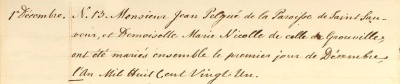 1r Décembre. N. 13. Monsieur Jean Pelgué de la Paroisse de Saint Sau-
veur, et Demoiselle Marie Nicolle de celle de Grouville,
ont été mariés ensemble le premier jour de Décembre
l'an Mil Huit Cent Vingt Un.